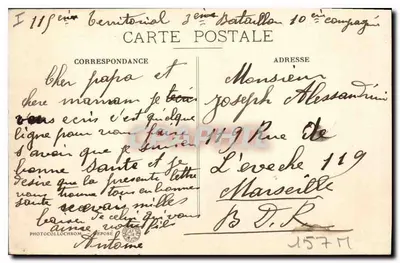 I 115eme Territorial 3eme Bataillon 10eme compagnie
CARTE POSTALE
CORRESPONDANCE
ADRESSE
Cher papa et
chere maman je
vous ecris c'est quelque
ligne pour vous faire
s'avoir que je suis en
bonne Santé et je
desire que la presente lettre
vous trouve tous en bonne
santé recevez milles
baiser de celui qui vous
aime votre fils
Antoine
Monsieur
Joseph Alessandrini
119 Rue de
L'eveche 119
Marseille
B. D. R
157M
PHOTOCOLLOCHROM